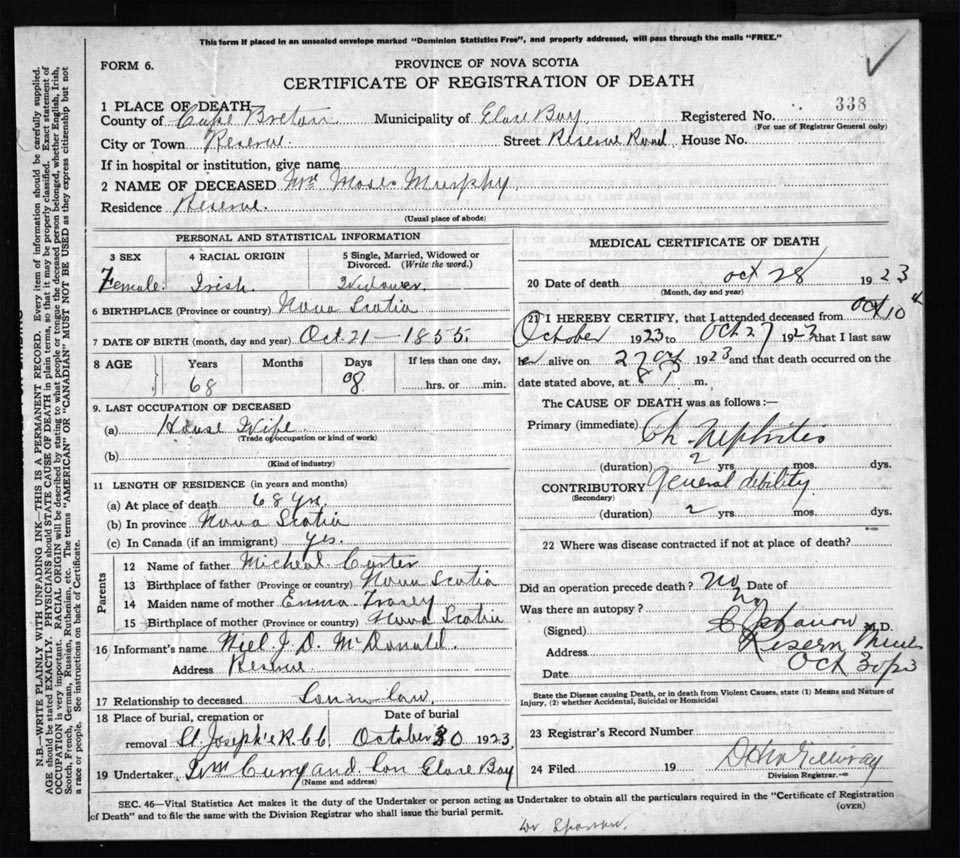 This form if placed in an unsealed envelope marked "Dominion Statistics Free", and properly addressed, will pass through the mails "FREE."
FORM 6.
PROVINCE OF NOVA SCOTIA
CERTIFICATE OF REGISTRATION OF DEATH
1 PLACE OF DEATH
338
County of Cape Breton Municipality of Glace Bay Registered No.
(For use of Registrar General only)
City or Town Reserve. Street Reserve Road House No.
If in hospital or institution, give name
2 NAME OF DECEASED Mrs Moses Murphy
Residence Reserve.
(Usual place of abode)
PERSONAL AND STATISTICAL INFORMATION
3 SEX 4 RACIAL ORIGIN 5 Single, Married, Widowed or Divorced. (Write the word.)
Female. Irish. Widower.
6 BIRTHPLACE (Province or country) Nova Scotia
7 DATE OF BIRTH (month, day and year) Oct. 21 - 1855.
8 AGE Years Months Days If less than one day,
68 08 hrs. or min.
9. LAST OCCUPATION OF DECEASED
(a) House Wife.
(Trade or occupation or kind of work)
(b)
(Kind of industry)
11 LENGTH OF RESIDENCE (in years and months)
(a) At place of death 68 yrs
(b) In province Nova Scotia
(c) In Canada (if an immigrant) yes.
Parents
12 Name of father Micheal
13 Birthplace of father (Province or country) Nova Scotia
14 Maiden name of mother Emma
15 Birthplace of mother (Province or country) Nova Scotia
16 Informant's name Niel J. D. McDonald.
Address Reserve
17 Relationship to deceased Son in law,
18 Place of burial, cremation or Date of burial
removal St. Joseph's R.C.C. October 30 1923.
19 Undertaker Curry and Son Glace Bay
(Name and address)
MEDICAL CERTIFICATE OF DEATH
20 Date of death Oct 28 1923
(Month, day and year)
21 I HEREBY CERTIFY, that I attended deceased from Oct 10
October 1923 to Oct 27 1923 that I last saw
her alive on 27 Oct 1923 and that death occurred on the
date stated above, at m.
The CAUSE OF DEATH was as follows:—
Primary (immediate) Ch. Nephritis
(duration) 2 yrs. mos. dys.
CONTRIBUTORY General debility
(Secondary)
(duration) 2 yrs. mos. dys.
22 Where was disease contracted if not at place of death?
Did an operation precede death? No Date of
Was there an autopsy? No
(Signed) M.D.
Address Reserve Mines
Date Oct 30/23
State the Disease causing Death, or in death from Violent Causes, state (1) Means and Nature of
Injury, (2) whether Accidental, Suicidal or Homicidal
23 Registrar's Record Number
24 Filed 19
Division Registrar.
SEC. 46—Vital Statistics Act makes it the duty of the Undertaker or person acting as Undertaker to obtain all the particulars required in the "Certificate of Registration
of Death" and to file the same with the Division Registrar who shall issue the burial permit.
(OVER)
N.B.—WRITE PLAINLY WITH UNFADING INK—THIS IS A PERMANENT RECORD. Every item of information should be carefully supplied.
AGE should be stated EXACTLY. PHYSICIANS should STATE CAUSE OF DEATH in plain terms, so that it may be properly classified. Exact statement of
OCCUPATION is very important. RACIAL ORIGIN will be described by stating to what people or tongue the deceased person belonged, whether English, Irish,
Scotch, French, German, Russian, Ruthenian, etc. The terms "AMERICAN" OR "CANADIAN" MUST NOT BE USED as they express citizenship but not
a race or people. See instructions on back of Certificate.